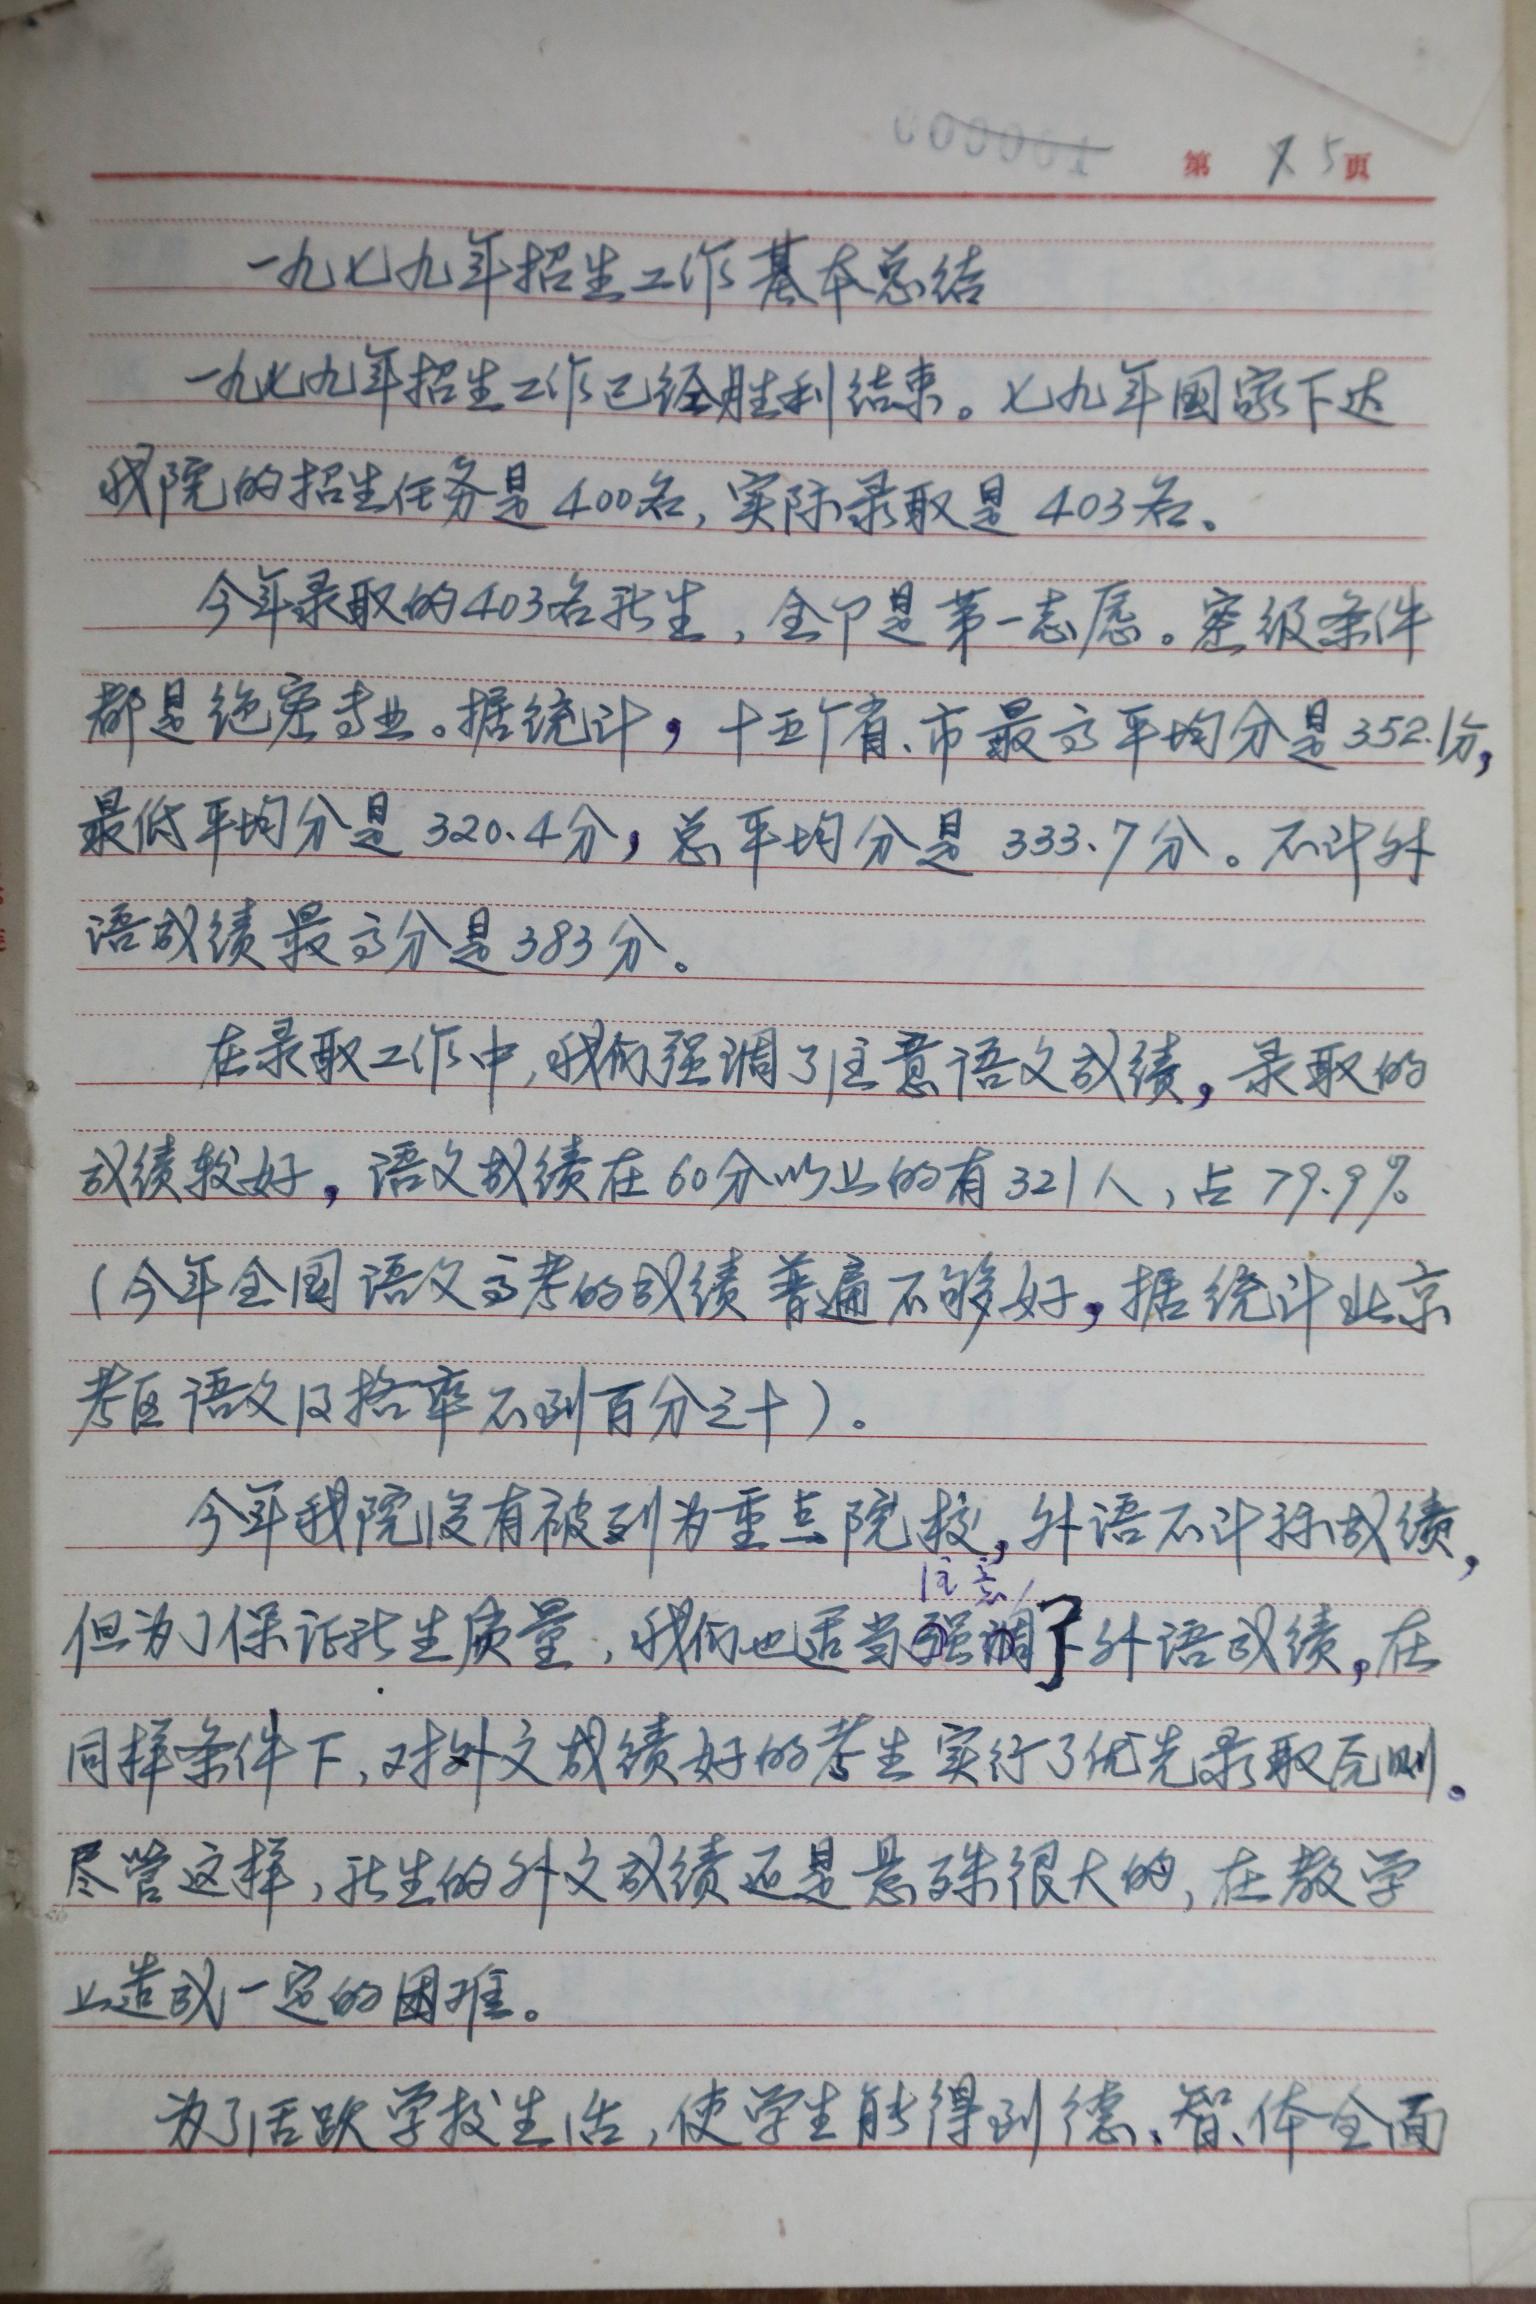 000001
第 15 页
一九七九年招生工作基本总结
一九七九年招生工作已经胜利结束。七九年国家下达
我院的招生任务是400名,实际录取是403名。
今年录取的403名新生,全卩是第一志愿。密级条件
都是绝密专业。据统计,十五个省、市最高平均分是352.1分,
最低平均分是320.4分,总平均分是333.7分。不计外
语成绩最高分是383分。
在录取工作中,我们强调了注意语文成绩,录取的
成绩较好,语文成绩在60分以上的有321人,占79.9%
(今年全国语文高考的成绩普遍不够好,据统计北京
考区语文及格率不到百分之十)。
今年我院没有被列为重点院校,外语不计称成绩,
注意
但为了保证新生质量,我们也适当强调了外语成绩,在
同样条件下,对外文成绩好的考生实行了优先录取原则。
尽管这样,新生的外文成绩还是悬殊很大的,在教学
上造成一定的困难。
为了活跃学校生活,使学生能得到德、智、体全面